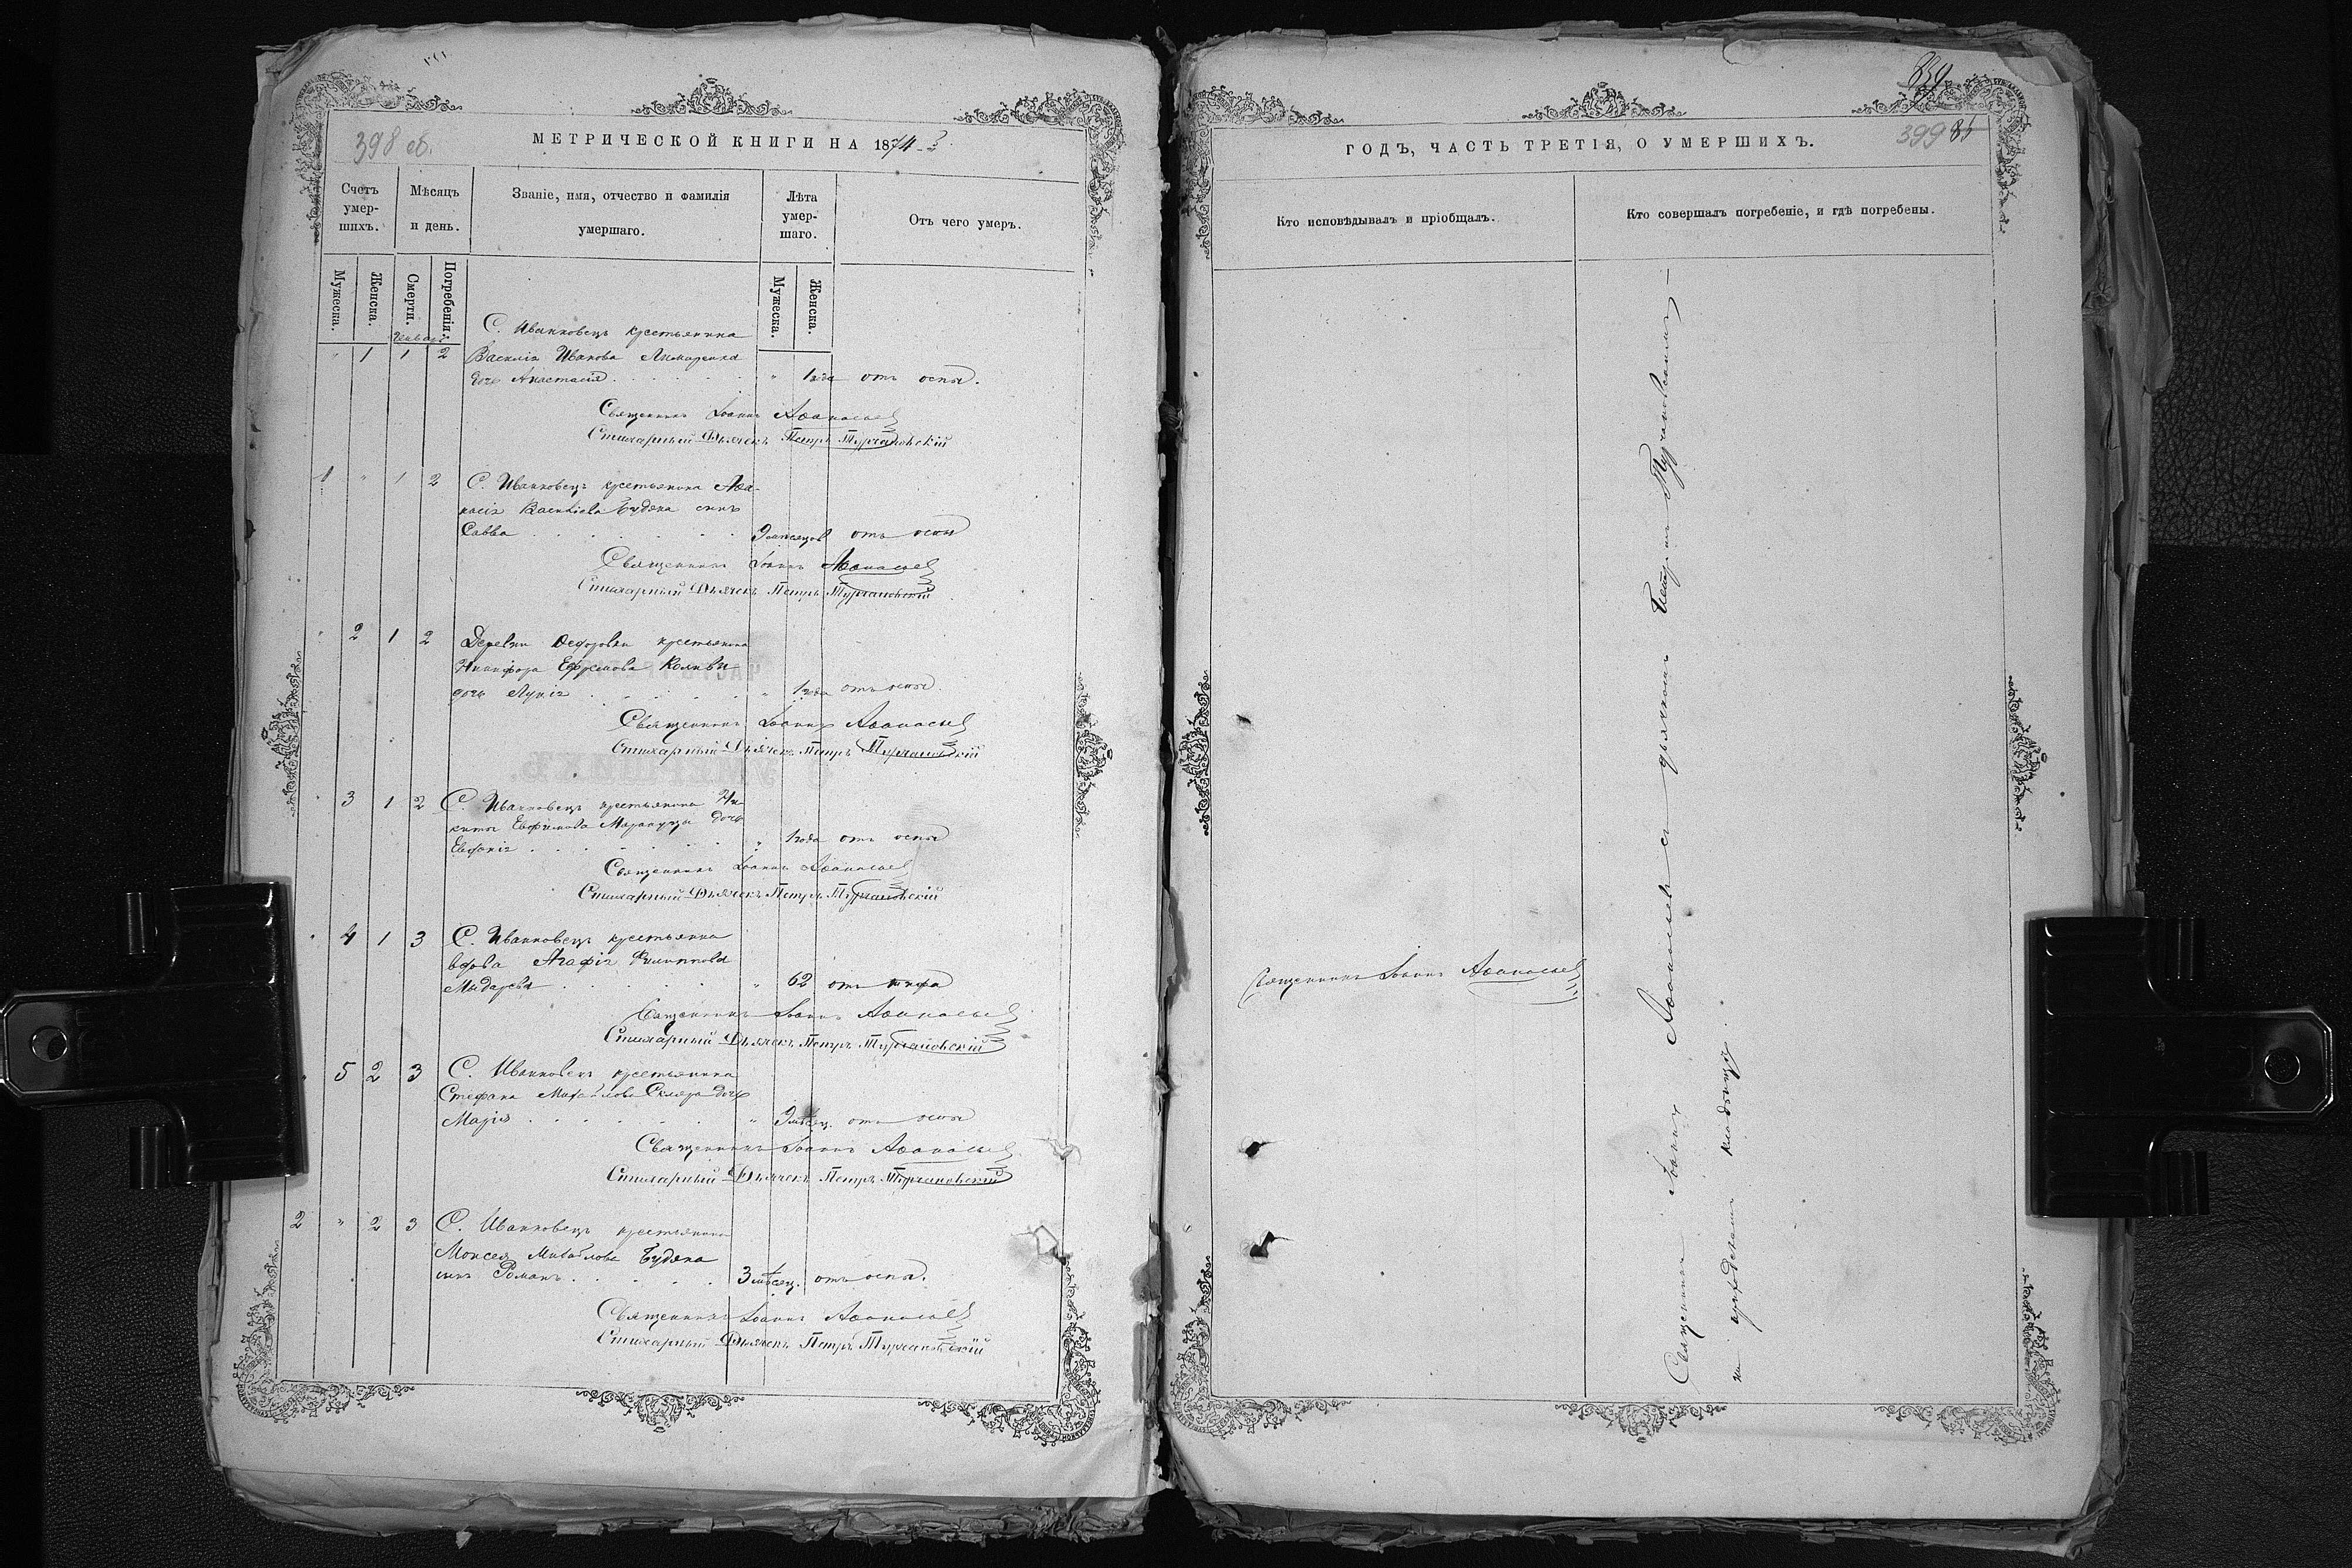 398 об.
МЕТРИЧЕСКОЙ КНИГИ НА 1874
Счетъ умер-шихъ.
Мѣсяцъ и день.
Званіе, имя, отчество и фамилія умершаго.
Лѣта умер-шаго.
Отъ чего умеръ.
Мужеска.
Женска.
Смерти.
Погребенія.
Мужеска.
Женска.
Январь
С. Иванковецъ крестьянина
" 1 1 2 Василія Иванова
дочь Анастасія " 1 года отъ оспы.
Священникъ Іоаннъ Аѳанасьев
Стихарный Дьячекъ Петръ Турчановскій
1 " 1 2 С. Иванковецъ крестьянина Аѳа-
насія Василіева Будяка сынъ
Савва отъ оспы
Священникъ Іоаннъ Аѳанасьев
Стихарный Дьячекъ Петръ Турчановскій
" 2 1 2 Деревни Ѳедоровки крестьянина
Никифора Ефремова
дочь Лукія " 1 года отъ оспы.
Священникъ Іоаннъ Аѳанасьев
Стихарный Дьячекъ Петръ Турчановскій
" 3 1 2 С. Иванковецъ крестьянина Ни-
киты Евфимова дочь
Евфимія " 1 года отъ оспы
Священникъ Іоаннъ Аѳанасьев
Стихарный Дьячекъ Петръ Турчановскій
" 4 1 3 С. Иванковецъ крестьянка
вдова Агафія Филиппова
" 62 отъ тифа
Священникъ Іоаннъ Аѳанасьев
Стихарный Дьячекъ Петръ Турчановскій
" 5 2 3 С. Иванковецъ крестьянина
Стефана Михайлова Скляра дочь
Марія " мѣсяц. отъ оспы
Священникъ Іоаннъ Аѳанасьев
Стихарный Дьячекъ Петръ Турчановскій
2 " 2 3 С. Иванковецъ крестьянина
Моисея Михайлова Будяка
сынъ Романъ 3 мѣсяц. отъ оспы.
Священникъ Іоаннъ Аѳанасьев
Стихарный Дьячекъ Петръ Турчановскій
399
ГОДЪ, ЧАСТЬ ТРЕТІЯ, О УМЕРШИХЪ.
Кто исповѣдывалъ и пріобщалъ.
Кто совершалъ погребеніе, и гдѣ погребены.
Священникъ Іоаннъ Аѳанасьев
Священникъ Іоаннъ Аѳанасьев съ дьячкомъ Петромъ Турчановскимъ
на приходскомъ кладбищѣ.